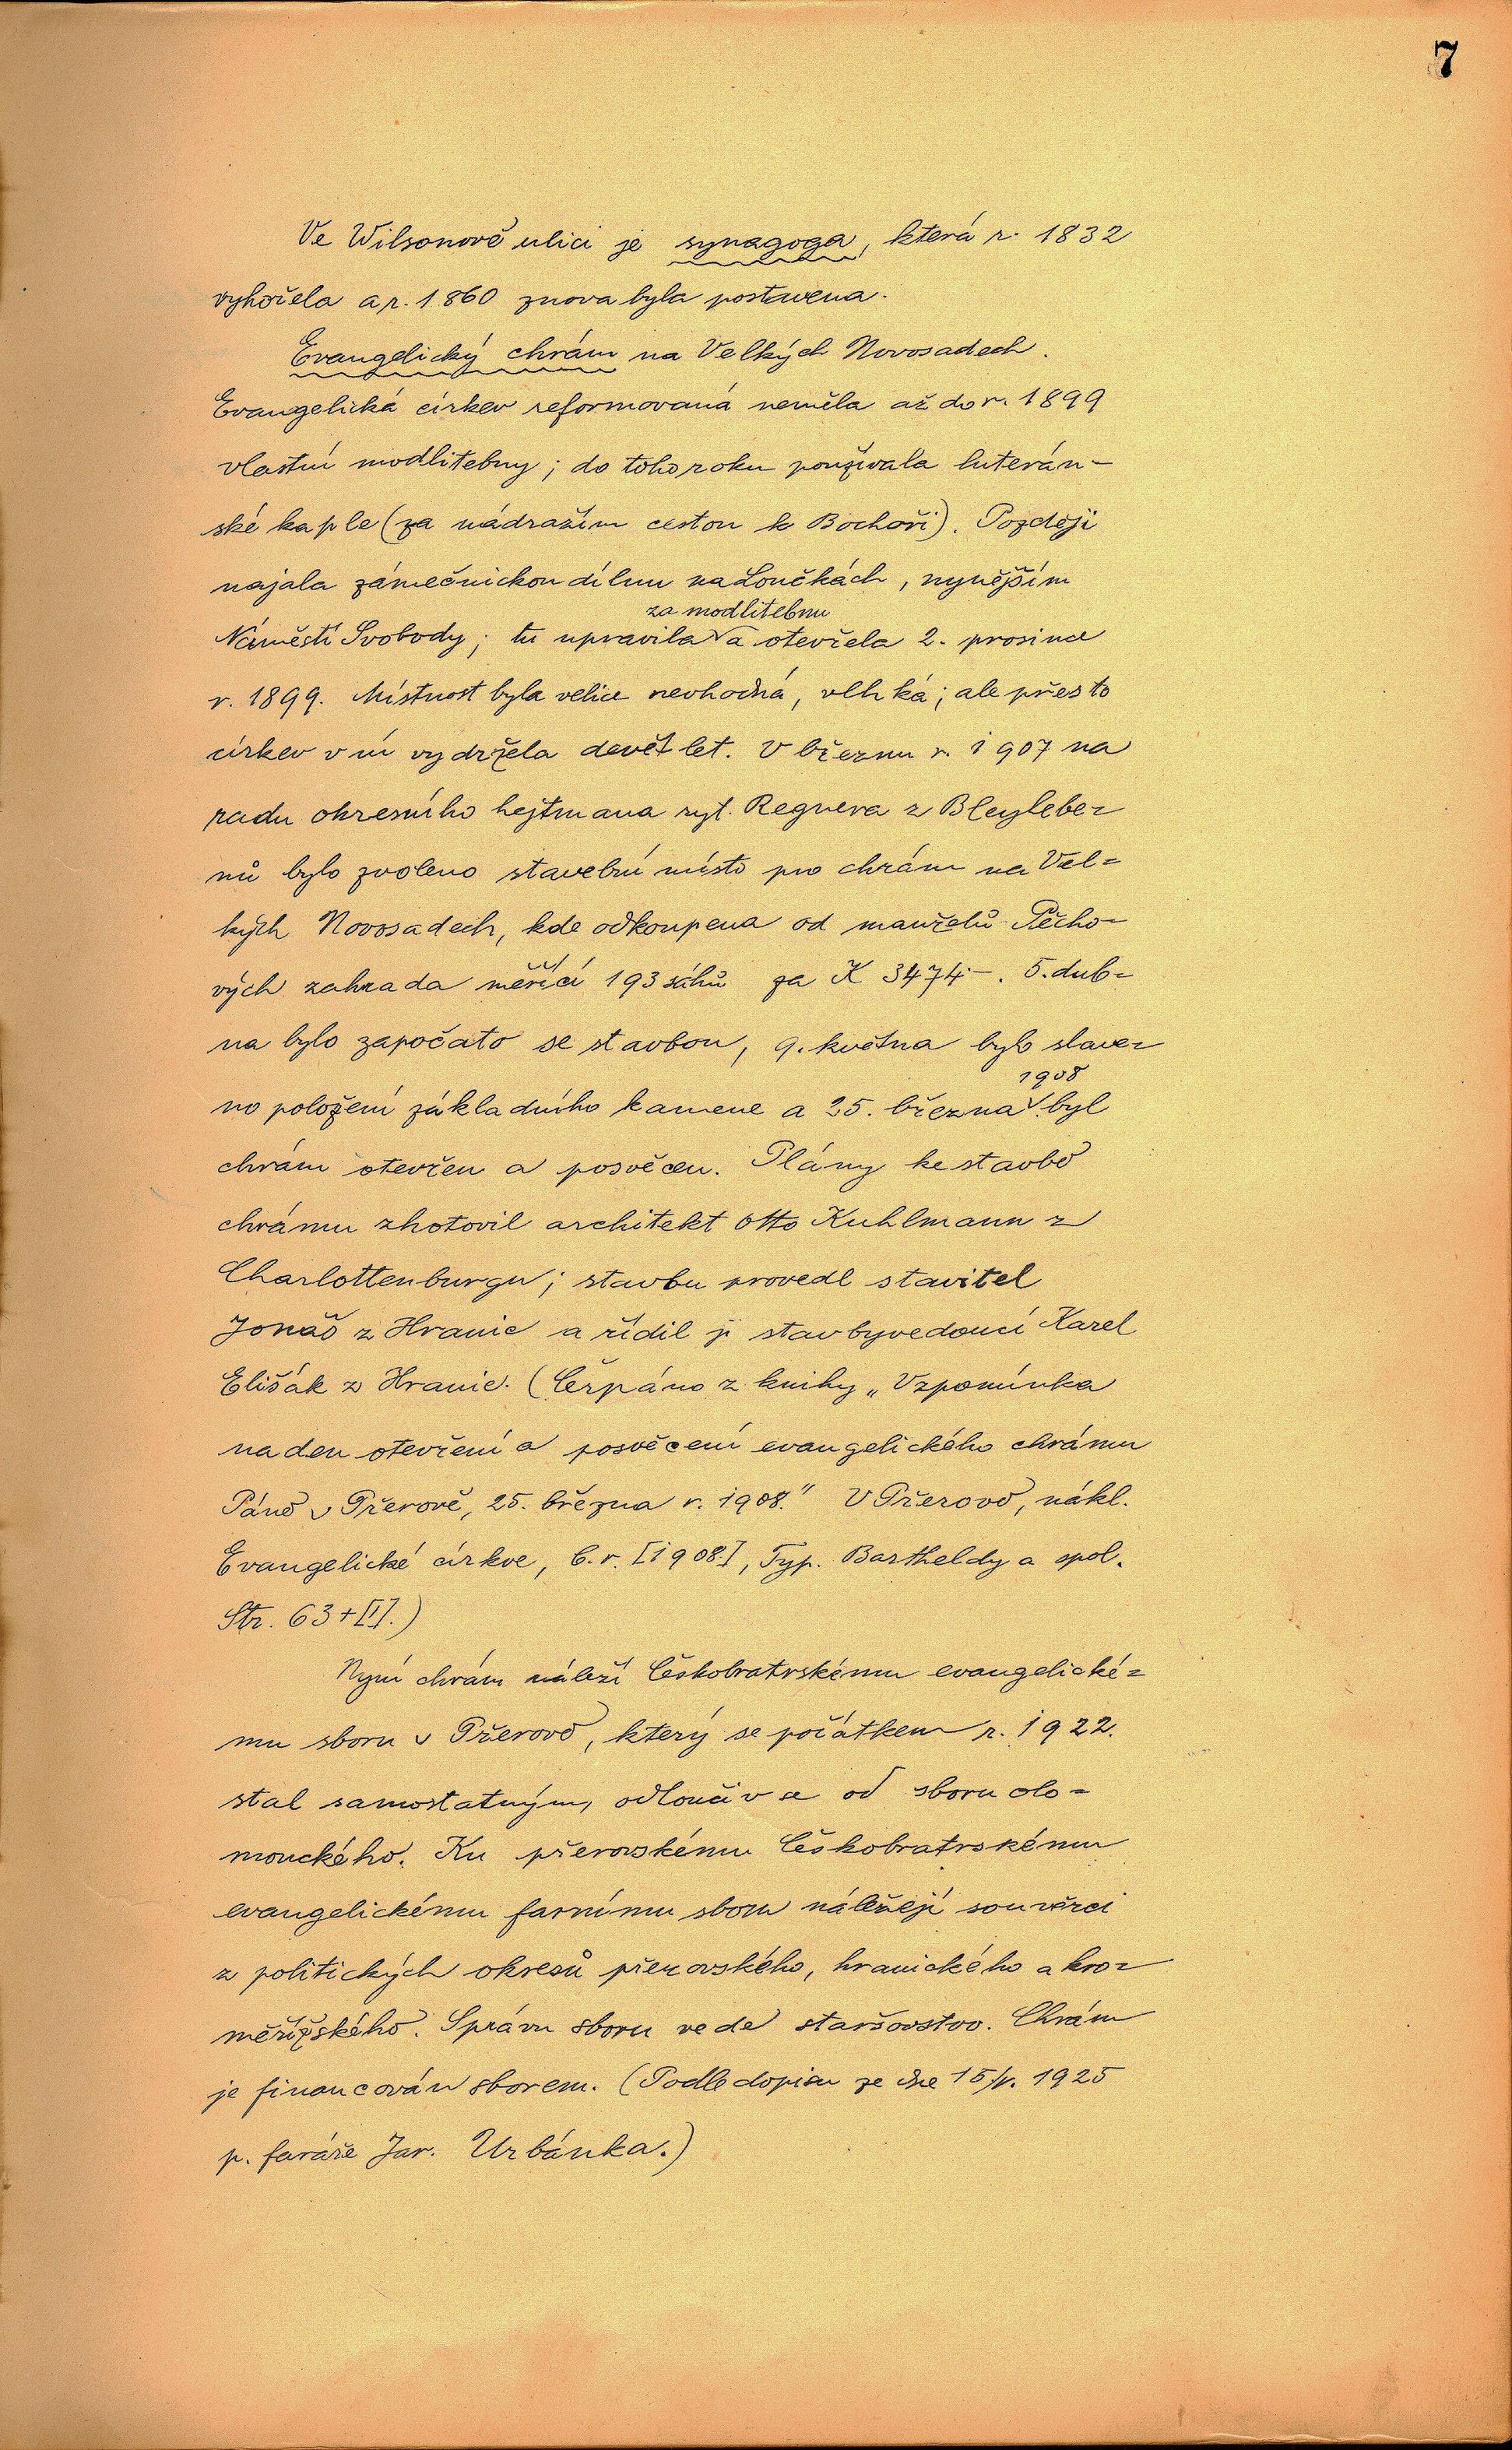 7
Ve Wilsonově ulici je synagoga, která r. 1832
vyhořela a r. 1860 znova byla postavena.
Evangelický chrám na Velkých Novosadech.
Evangelická církev reformovaná neměla až do r. 1899
vlastní modlitebny; do toho roku používala luterán-
ské kaple (za nádražím cestou k Bochoři). Později
najala zámečnickou dílnu na Loučkách, nynějším
za modlitebnu
Náměstí Svobody; tu upravila a otevřela 2. prosince
r. 1899. Místnost byla velice nevhodná, vlhká; ale přes to
církev v ní vydržela devět let. V březnu r. 1907 na
radu okresního hejtmana ryt. Regnera z Bleyleben-
nů bylo zvoleno stavební místo pro chrám na Vel-
kých Novosadech, kde odkoupena od manželů Pěcho-
vých zahrada měřící 193 sáhů za K 3474.-. 5. dub-
na bylo započato se stavbou, 9. května bylo slave-
1908
no položení základního kamene a 25. března byl
chrám otevřen a posvěcen. Plány ke stavbě
chrámu zhotovil architekt Otto Kuhlmann z
Charlottenburgu; stavbu provedl stavitel
Jonáš z Hranic a řídil ji stavbyvedoucí Karel
Elišák z Hranic. (Čerpáno z knihy „Vzpomínka
na den otevření a posvěcení evangelického chrámu
Páně v Přerově, 25. března r. 1908." V Přerově, nákl.
Evangelické církve, b. r. [1908], Typ. Bartheldy a spol.
Str. 63 + [1].)
Nyní chrám náleží Českobratrskému evangelické-
mu sboru v Přerově, který se počátkem r. 1922.
stal samostatným, odloučiv se od sboru olo-
mouckého. Ku přerovskému Českobratrskému
evangelickému farnímu sboru náležejí souvěrci
z politických okresů přerovského, hranického a kro-
měřížského. Správu sboru vede staršovstvo. Chrám
je financován sborem. (Podle dopisu ze dne 15/V. 1925
p. faráře Jar. Urbánka.)